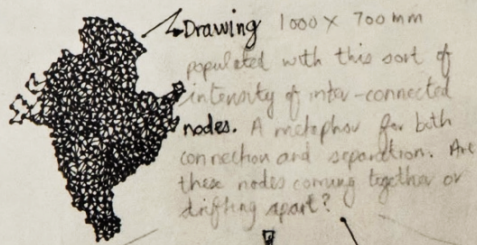 Drawing 1000 X 700 mm
populated with this sort of
intensity of inter-connected
nodes. A metaphor for both
connection and separation. Are
these nodes coming together or
drifting apart?